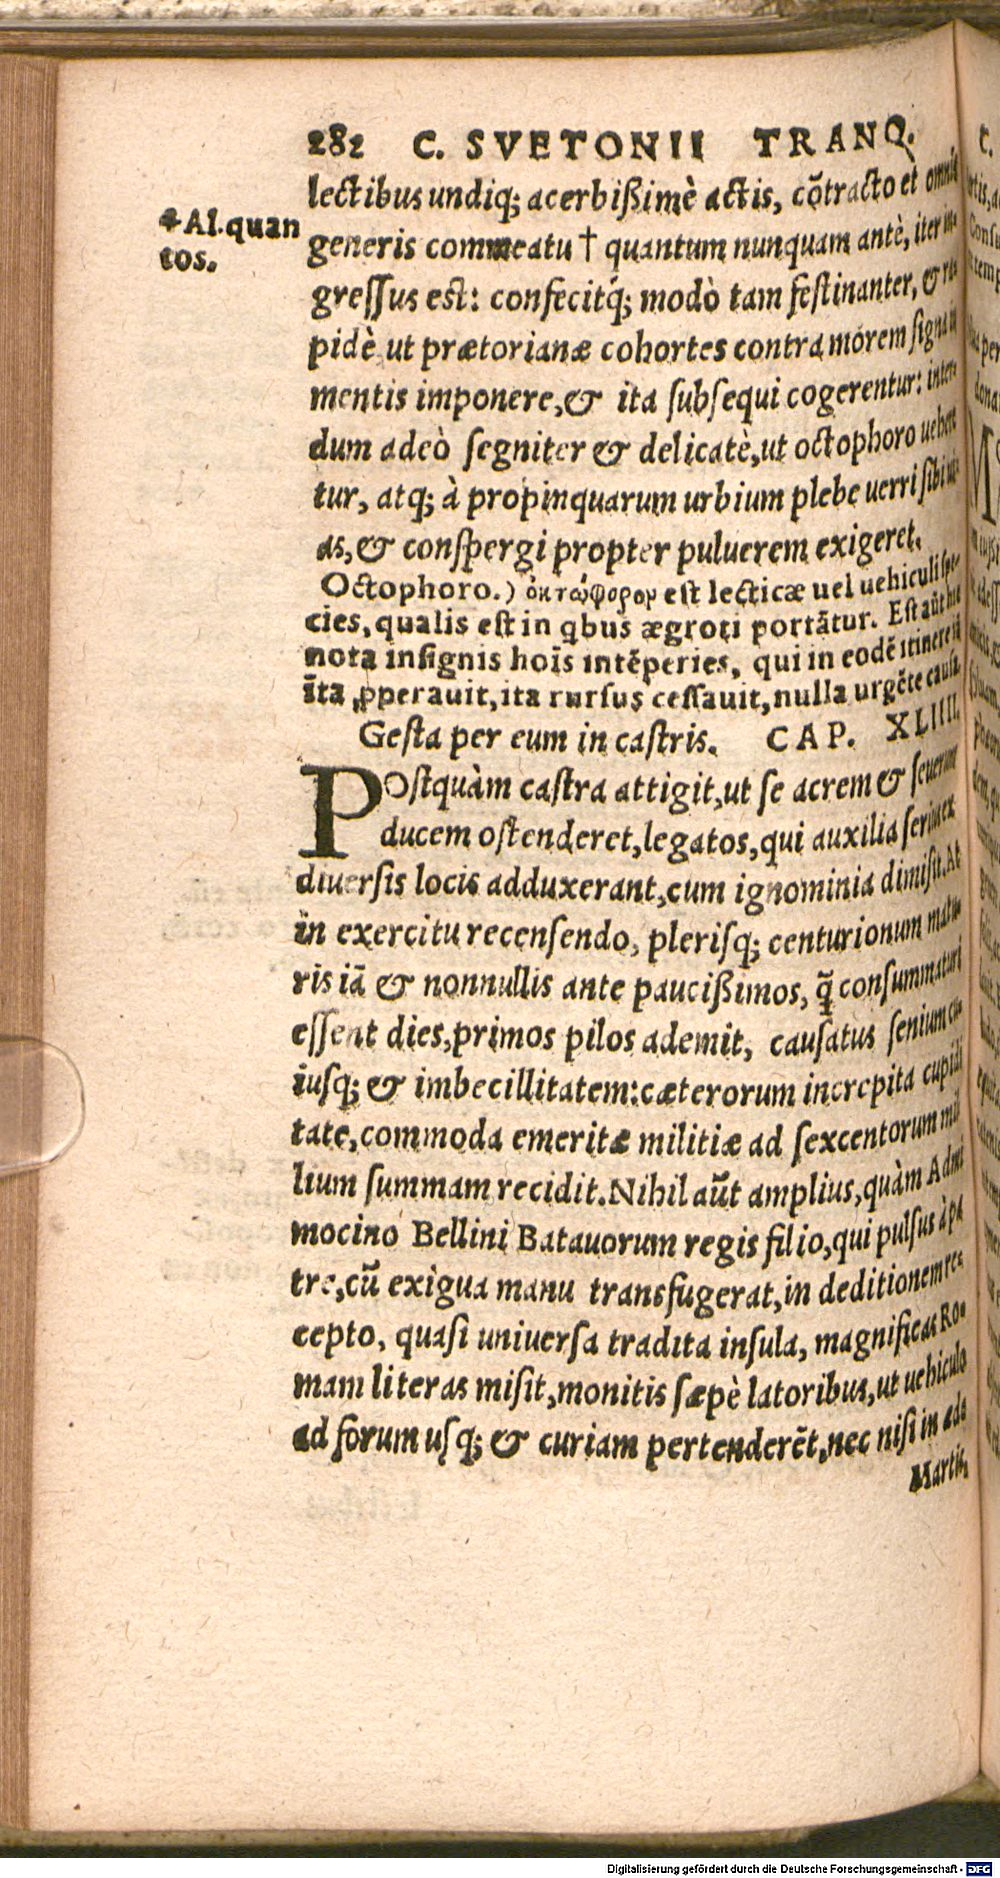 282 C. SVETONII TRANQ.
lectibus undiq; acerbißimè actis, cõtracto et omnis
‡Al. quan
tos.
generis commeatu † quantum nunquam antè, iter in-
gressus est: confecitq́; modò tam festinanter, & ra
pidè, ut prætorianæ cohortes contra morem signa iu
mentis imponere, & ita subsequi cogerentur: inter
dum adeò segniter & delicatè, ut octophoro ueheret
tur, atq; à propinquarum urbium plebe uerri sibi ui-
as, & conspergi propter puluerem exigeret.
Octophoro.) ὀκτώφορον est lecticæ uel uehiculi spe-
cies, qualis est in qbus ægroti portãtur. Est aũt hic
nota insignis hoĩs intẽperies, qui in eodẽ itinere iã
ĩta ꝓperauit, ita rursus cessauit, nulla urgẽte causa
Gesta per eum in castris. CAP. XLIIII.
POstquàm castra attigit, ut se acrem & seuerum
ducem ostenderet, legatos, qui auxilia serius ex
diuersis locis adduxerant, cum ignominia dimisit. At
in exercitu recensendo, plerisq; centurionum matu
ris iã & nonnullis ante paucißimos, q̃ consummaturi
essent dies, primos pilos ademit, causatus senium cu
iusq; & imbecillitatem: cæterorum increpita cupidi
tate, commoda emeritæ militiæ ad sexcentorum mil
lium summam recidit. Nihil aũt amplius, quàm Admi
mocino Bellini Batauorum regis filio, qui pulsus à pa
tre, cũ exigua manu transfugerat, in deditionem re-
cepto, quasi uniuersa tradita insula, magnificas Ro-
mam literas misit, monitis sæpè latoribus, ut uehiculo
ad forum usq; & curiam pertenderẽt, nec nisi in æde
Martis,
Digitalisierung gefördert durch die Deutsche Forschungsgemeinschaft - DFG